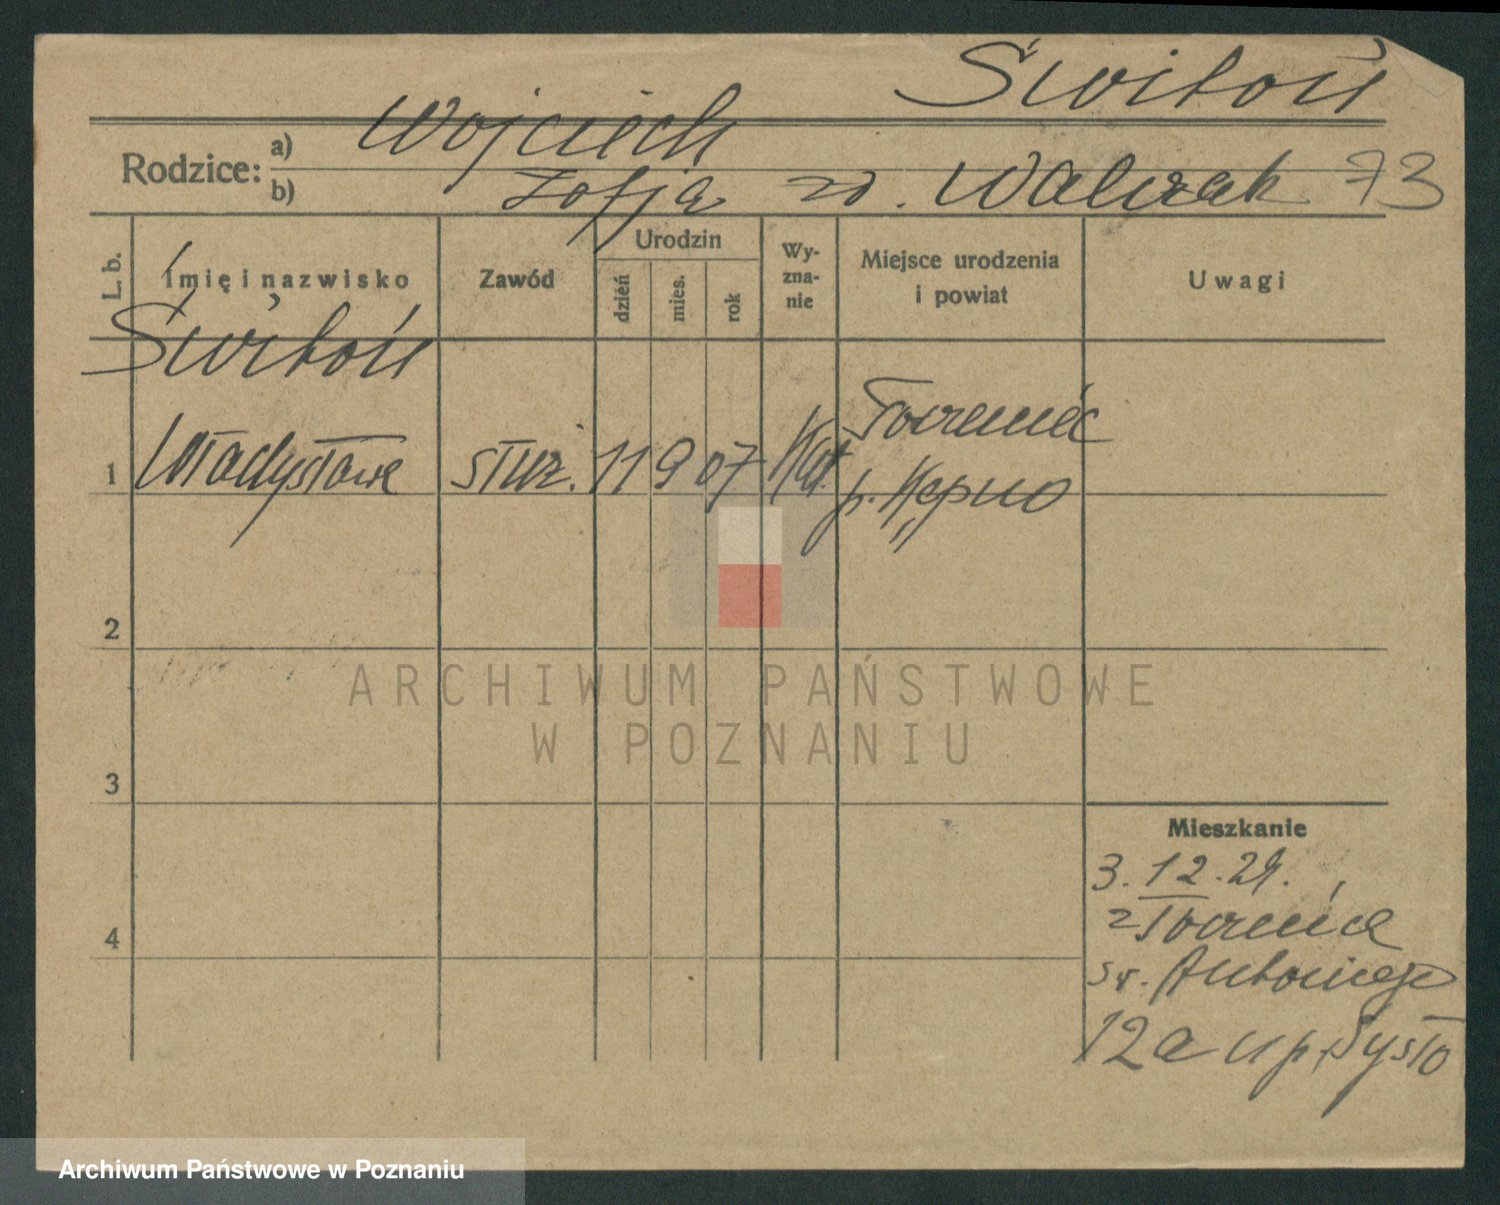 Świtoń
Rodzice:
a) Wojciech
b) Zofja z d. Walczak 73
L. b.
Imię i nazwisko
Zawód
Urodzin
dzień
mies.
rok
Wy-
zna-
nie
Miejsce urodzenia
i powiat
Uwagi
Świtoń
1 Władysława służ. 11 9 07 Kat.
p. Kępno
2
3
4
Mieszkanie
3.12.29.
z
św. Antoniego
12a u p.
ARCHIWUM PAŃSTWOWE
W POZNANIU
Archiwum Państwowe w Poznaniu